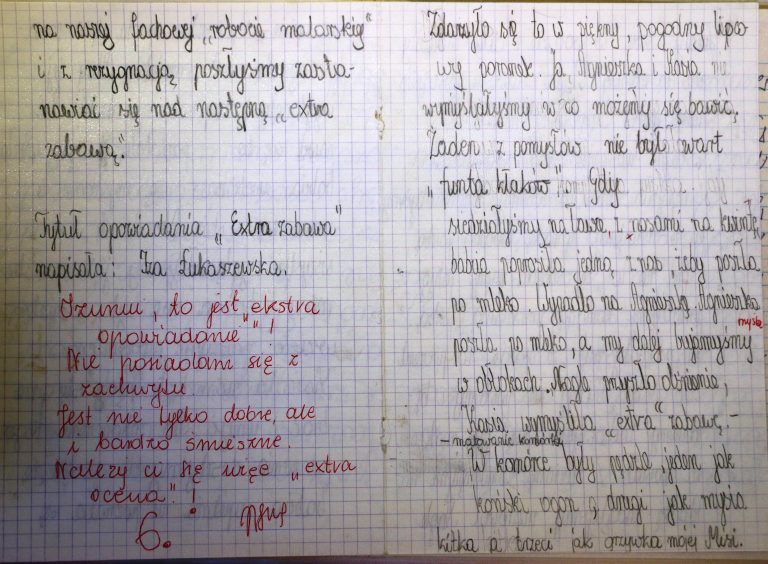 na naszej fachowej „robocie malarskiej"
i z rezygnacją poszłyśmy zasta-
nawiać się nad następną „extra
zabawą."
Tytuł opowiadania „Extra zabawa"
napisała: Iza Łukaszewska.
Izuniu, to jest „ekstra
opowiadanie"!
Nie posiadam się z
zachwytu.
Jest nie tylko dobre, ale
i bardzo śmieszne.
Należy ci się więc „extra
ocena"!
6.
Zdarzyło się to w piękny, pogodny lipco
wy poranek. Ja, Agnieszka i Kasia
wymyślałyśmy w co możemy się bawić.
Żaden z pomysłów nie był wart
„funta kłaków". Gdy
siedziałyśmy na ława, z nosami na kwintę,
babcia poprosiła jedną z nas, żeby poszła
po mleko. Wypadło na Agnieszkę. Agnieszka
poszła po mleko, a my dalej bujamyśmy
w obłokach. Nagle przyszło olśnienie,
Kasia wymyśliła „extra" zabawę. -
- malowanie komórki
W komórce były pędzle, jeden jak
koński ogon, drugi jak mysia
kitka a trzeci jak grzywka mojej Misi.